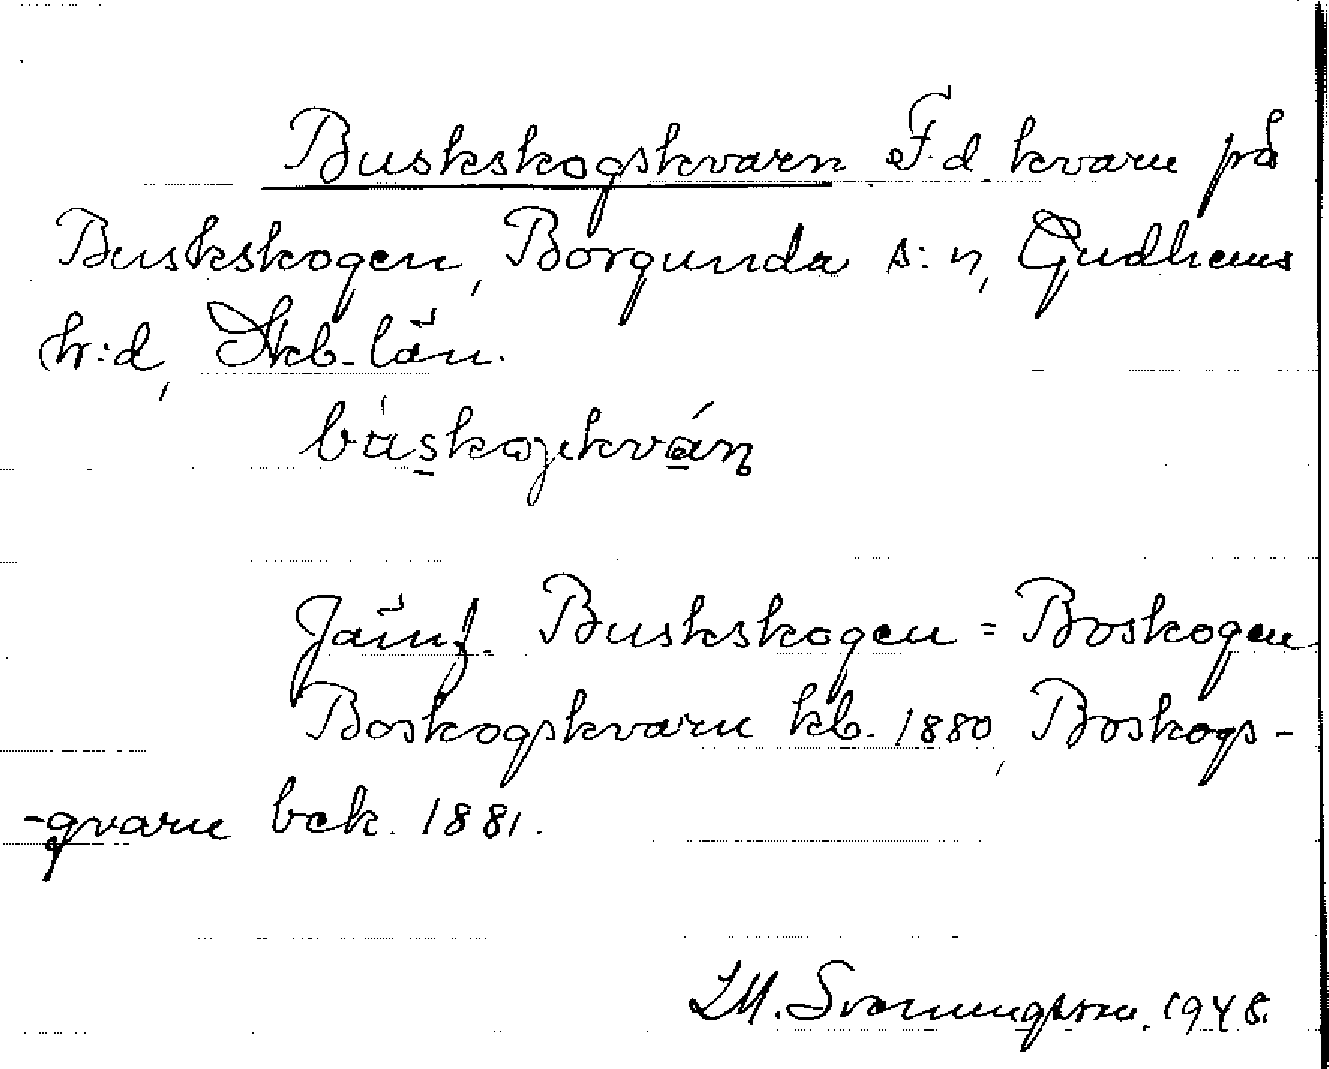 Buskskogskvarn F.d. kvarn på
Buskskogen, Borgunda s:n, Gudhems
hr:d, Skb. län.
Jämf. Buskskogen = Boskogen
Boskogskvarn kb. 1880, Boskogs-
-qvarn bek. 1881.
1948.